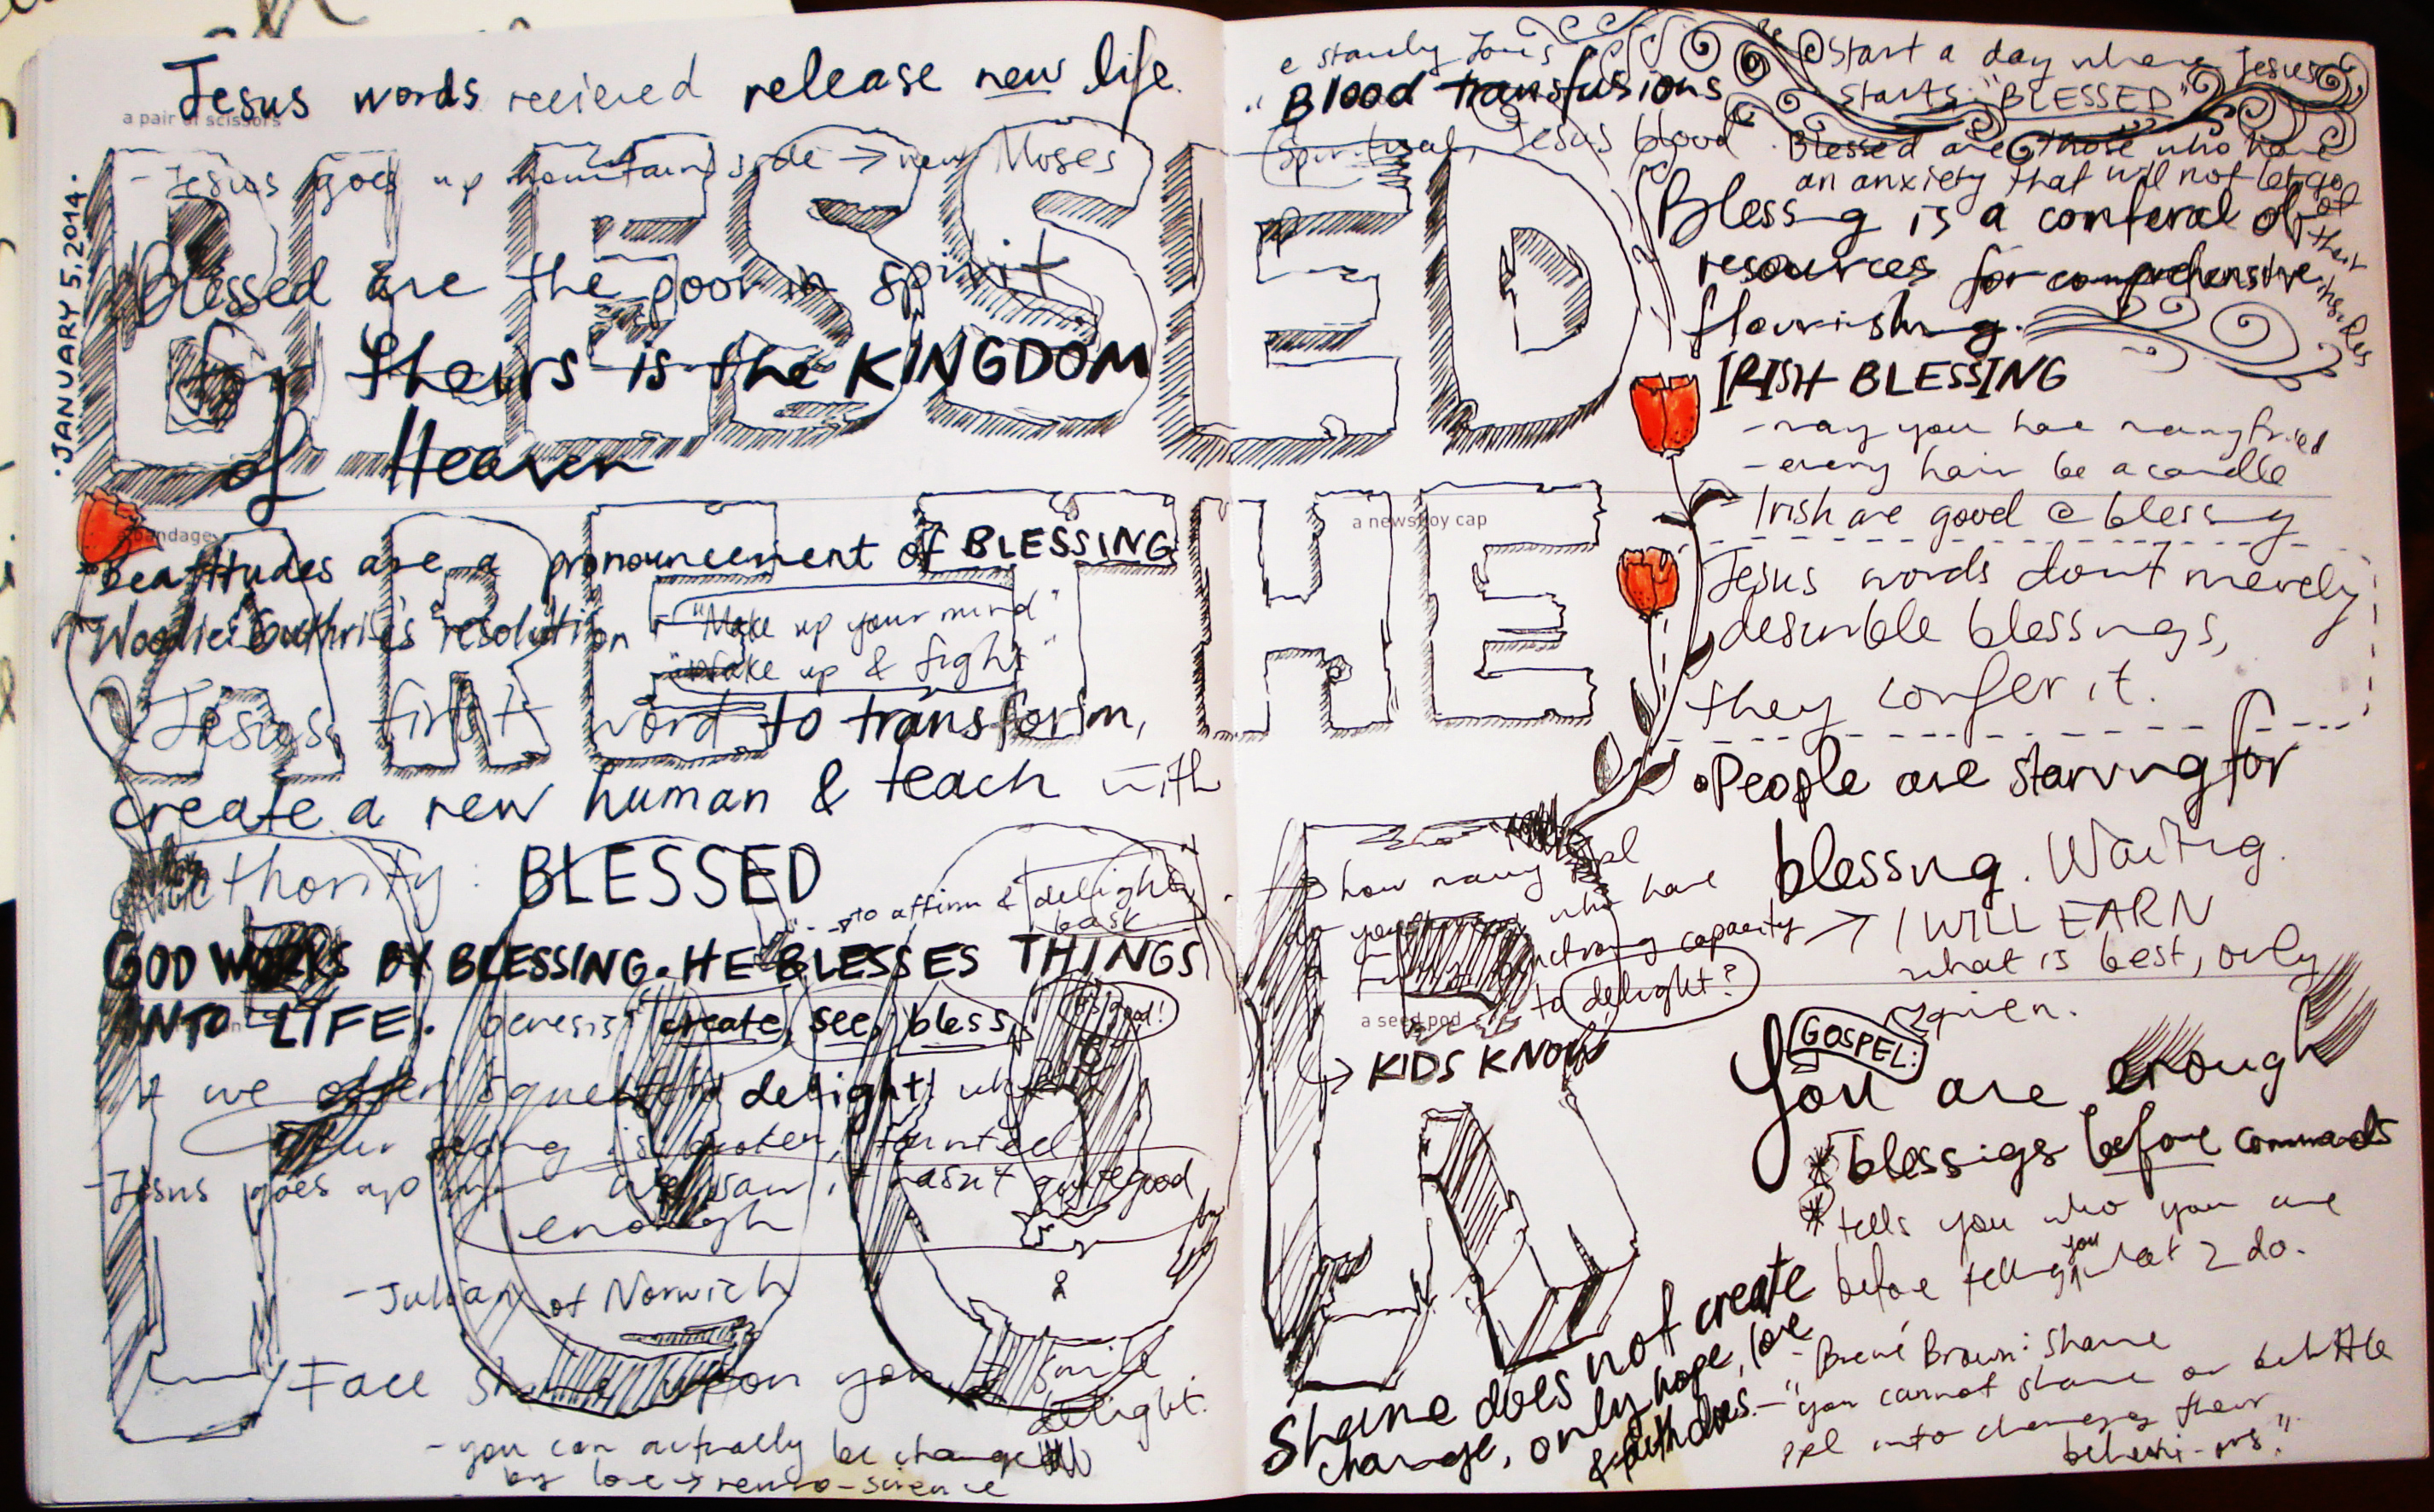 Jesus words recieved release new life.
a pair of scissors
- Jesus goes up mountain side → new Moses
JANUARY 5, 2014
BLESSED
Blessed are the poor in spirit
for theirs is the KINGDOM
of Heaven
ARE THE
a bandage
Beatitudes are a pronouncement of BLESSING
Woodie Guthrie's resolution - "Make up your mind"
"Wake up & fight"
Jesus first word to transform,
create a new human & teach with
authority: BLESSED
→ to affirm & delight, bask
GOD WORKS BY BLESSING. HE BLESSES THINGS
INTO LIFE. Genesis: create, see, bless, it's good!
we often squelch delight
our seeing is broken, tainted
- Jesus goes up
we saw it wasn't quite good
enough
- Julian of Norwich
Face shine upon you & smile
delight.
- you can actually be change
by love → neuro-science
POOR
IN
e stanley Jones
"Blood transfusions
Spiritual, Jesus blood"
Start a day where Jesus
starts: "BLESSED"
Blessed are those who have
an anxiety that will not let go
of their
Blessing is a conferal of
resources for comprehensive
flourishing.
IRISH BLESSING
- may you have many friend
- every hair be a candle
- Irish are good @ blessing
a newsboy cap
Jesus words dont merely
describle blessings,
they confer it.
• People are starving for
blessing. Waiting.
→ how many ppl
do you know who have
functioning capacity
to delight?
→ I WILL EARN
what is best, only
given.
a seed pod
↳ KIDS KNOW
GOSPEL:
You are enough
* blessigs before commands
* tells you who you are
before telling you what 2 do.
Shame does not create
change, only hope, love
& faith does.
- Brené Brown: Shame
- "you cannot shame or belittle
ppl into changing their
behavi-ors."